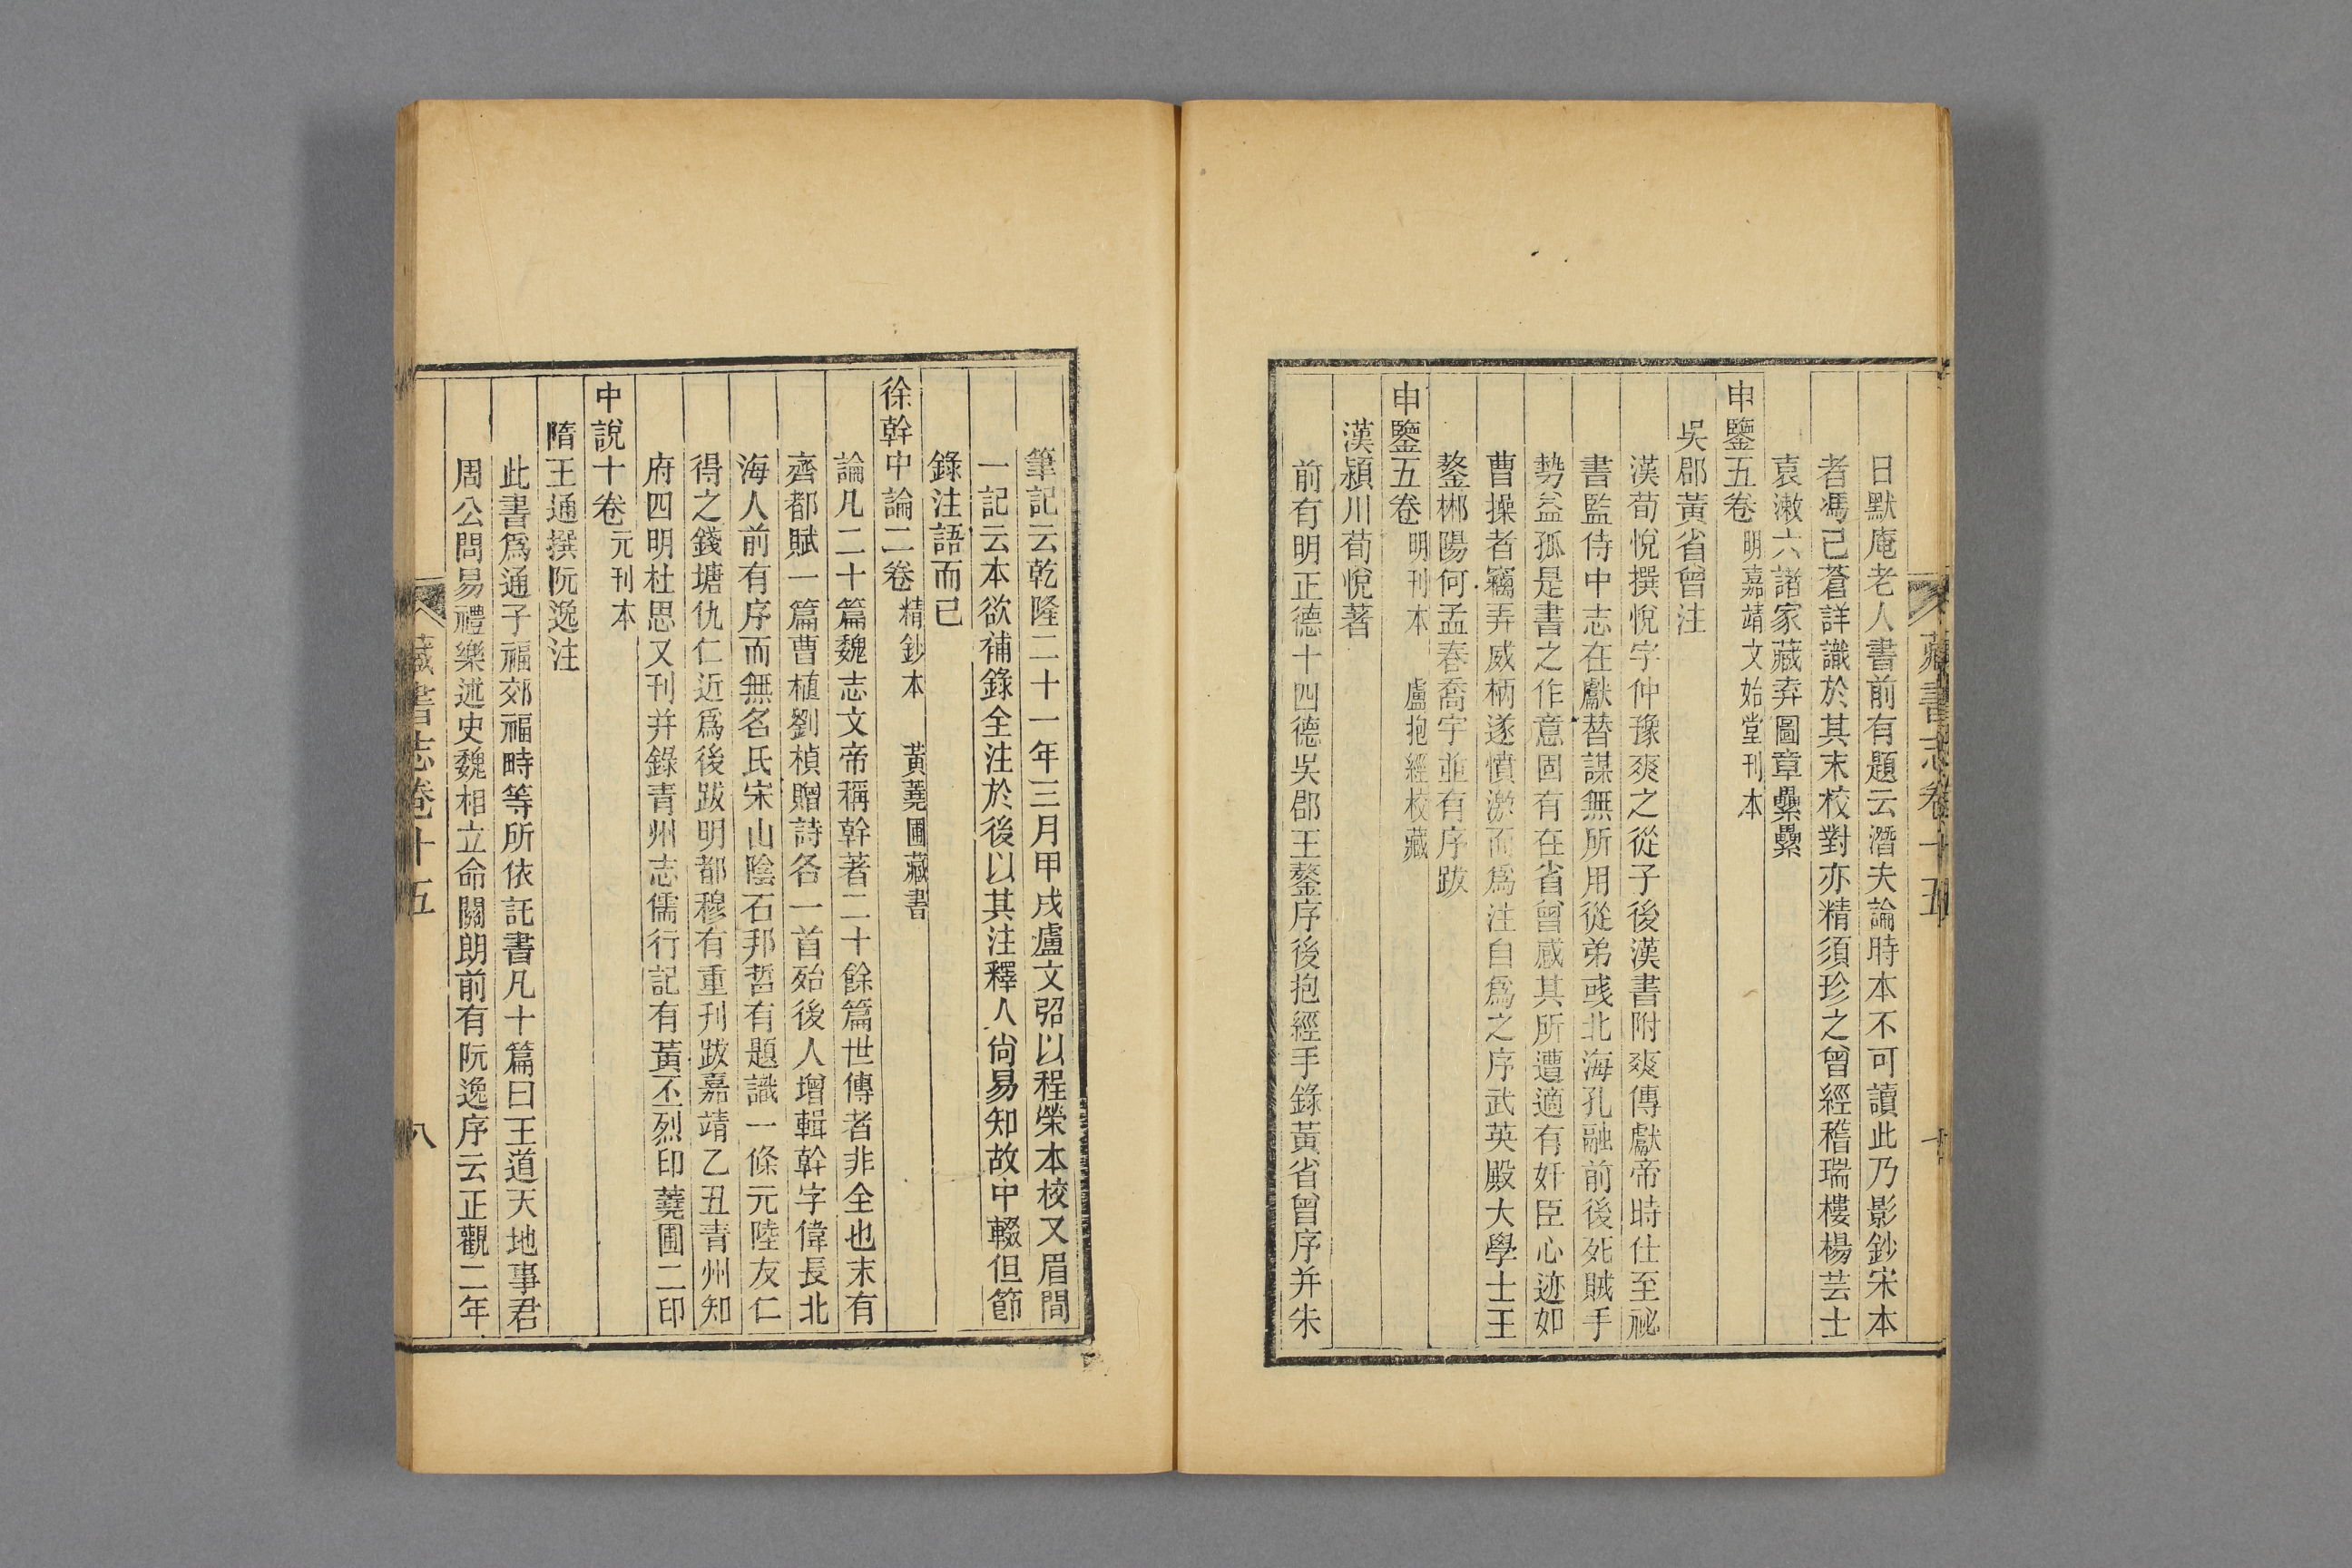 藏書志卷十五
日默庵老人書前有題云潛夫論時本不可讀此乃影鈔宋本
者馮已蒼詳識於其末校對亦精須珍之曾經稽瑞樓楊芸士
袁漱六諸家藏弆圖章纍纍
申鑒五卷 明嘉靖文始堂刊本
吳郡黃省曾注
漢荀悅撰悅字仲豫爽之從子後漢書附爽傳獻帝時仕至祕
書監侍中志在獻替謀無所用從弟彧北海孔融前後死賊手
勢益孤是書之作意固有在省曾感其所遭適有奸臣心迹如
曹操者竊弄威柄遂憤激而爲注自爲之序武英殿大學士王
鏊郴陽何孟春喬宇並有序跋
申鑒五卷 明刊本 盧抱經校藏
漢潁川荀悅著
前有明正德十四德吳郡王鏊序後抱經手錄黃省曾序并朱
筆記云乾隆二十一年三月甲戌盧文弨以程榮本校又眉間
一記云本欲補錄全注於後以其注釋人尙易知故中輟但節
錄注語而已
徐幹中論二卷 精鈔本 黃蕘圃藏書
論凡二十篇魏志文帝稱幹著二十餘篇世傳者非全也末有
齊都賦一篇曹植劉楨贈詩各一首殆後人增輯幹字偉長北
海人前有序而無名氏宋山陰石邦哲有題識一條元陸友仁
得之錢塘仇仁近爲後跋明都穆有重刊跋嘉靖乙丑青州知
府四明杜思又刊并錄青州志儒行記有黃丕烈印蕘圃二印
中說十卷 元刊本
隋王通撰阮逸注
此書爲通子福郊福畤等所依託書凡十篇曰王道天地事君
周公問易禮樂述史魏相立命關朗前有阮逸序云正觀二年
藏書志卷十五
八